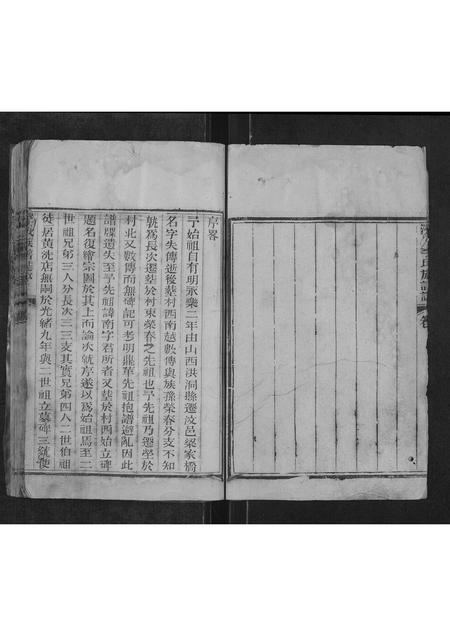 序畧
予始祖自有明永樂二年由山西洪洞縣遷汲邑梁家橋
名字失傳逝後塟村西南越數傳與族孫榮春分支不知
孰爲長次遷塟於村東榮春之先祖也予先祖乃遷塋於
村北又數傳而無碑記可考明鼎革先祖抱譜避亂因此
譜牒遺失至予先祖諱南字君所者又塟於村西始立碑
題名復繪宗圖於其上而論次就序遂以爲始祖焉至二
世祖兄弟三人分長次三三支其實兄弟四人二世伯祖
徙居黃洗店無嗣於光緒九年與二世祖立墓碑三統使
氏族譜 卷